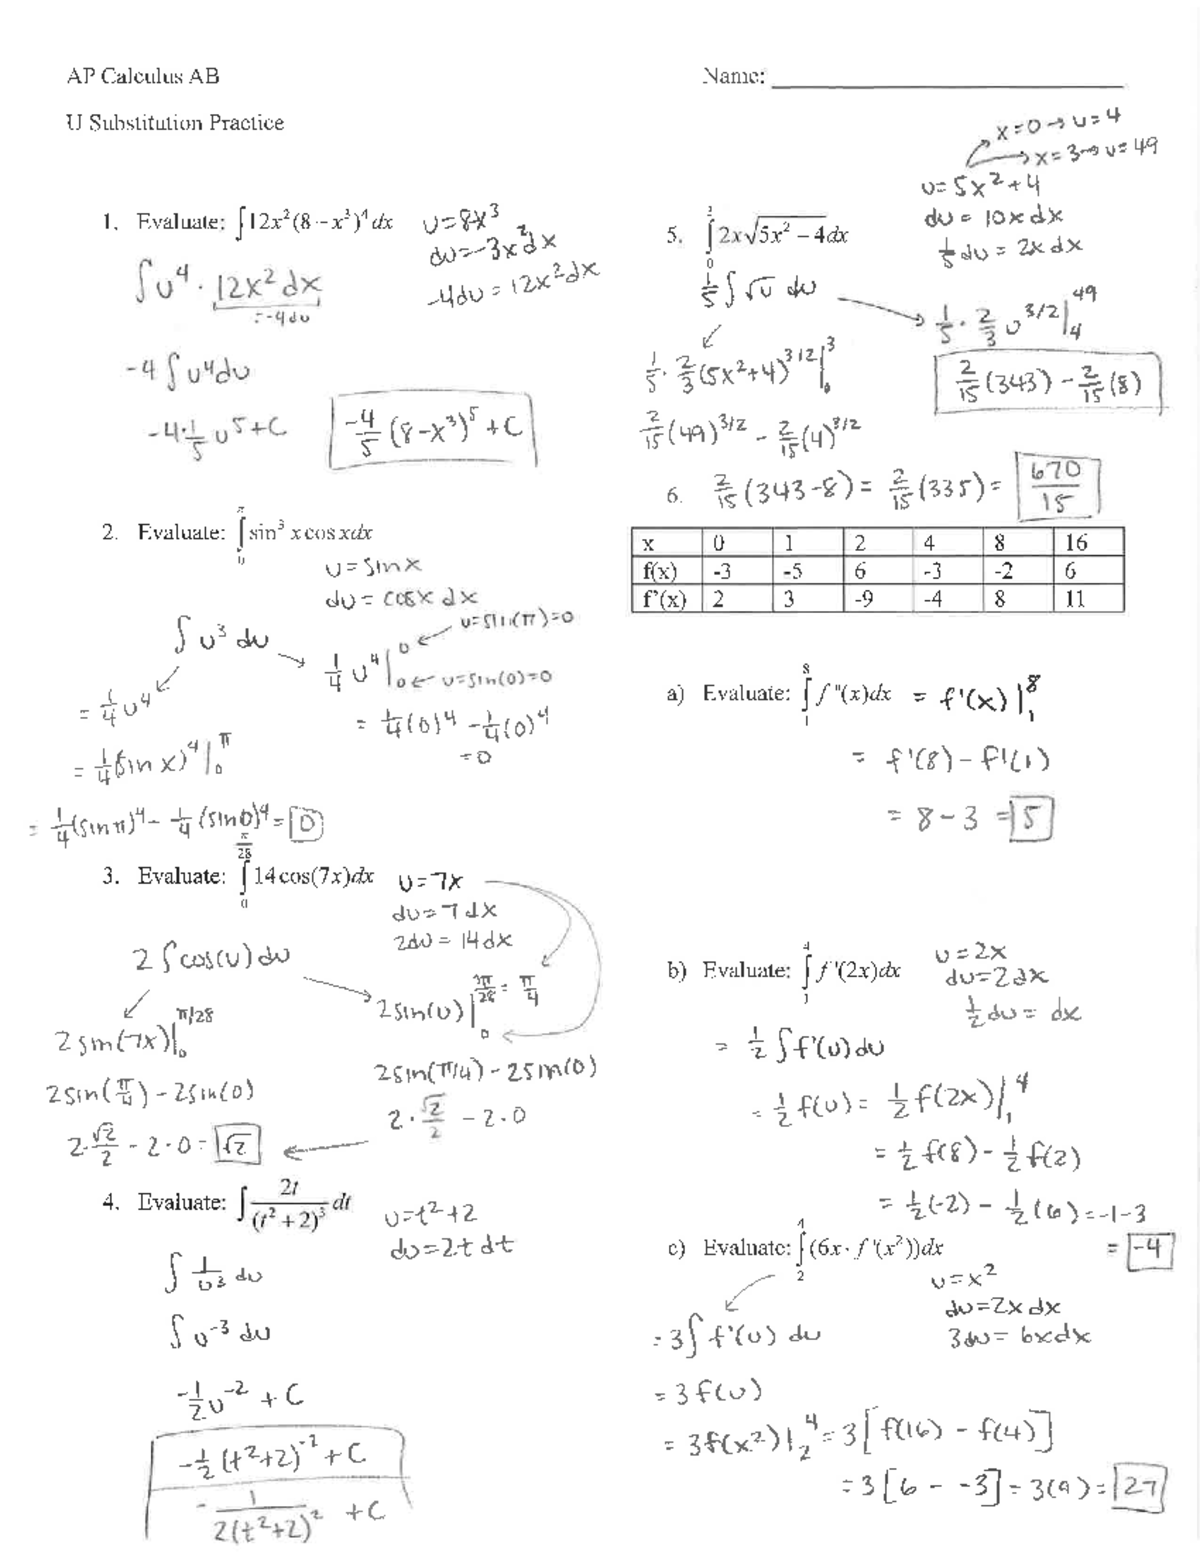 AP Calculus AB
Name:
U Substitution Practice
1. Evaluate: ∫12x²(8 – x³)⁴ dx
u=8-x³
du=-3x²dx
-4du = 12x²dx
∫u⁴ · 12x² dx
=-4du
-4 ∫u⁴du
-4·1/5 u⁵+C
-4/5 (8-x³)⁵ + C
2. Evaluate: ∫₀^π sin³ x cos xdx
u=sinx
du = cosx dx
∫ u³ du
1/4 u⁴ |₀⁰
u=sin(π)=0
u=sin(0)=0
= 1/4 u⁴
= 1/4(0)⁴ - 1/4(0)⁴
=0
= 1/4(sin x)⁴ |₀^π
= 1/4(sinπ)⁴ - 1/4(sin0)⁴ = 0
3. Evaluate: ∫₀^(π/28) 14cos(7x)dx
u=7x
du=7dx
2du = 14dx
2∫cos(u)du
2sin(u)|₀^(7π/28 = π/4)
2sin(7x)|₀^(π/28)
2sin(π/4) - 2sin(0)
2sin(π/4) - 2sin(0)
2·√2/2 - 2·0
2·√2/2 - 2·0 = √2
4. Evaluate: ∫ 2t/(t² + 2)³ dt
u=t²+2
du=2t dt
∫ 1/u³ du
∫ u⁻³ du
-1/2 u⁻² + C
-1/2 (t²+2)⁻² + C
-1/2(t²+2)² + C
x=0→u=4
x=3→u=49
u=5x²+4
du = 10x dx
1/5 du = 2x dx
5. ∫₀³ 2x√(5x² – 4)dx
1/5 ∫ √u du
1/5 · 2/3 u^(3/2) |₄⁴⁹
1/5 · 2/3 (5x²+4)^(3/2) |₀³
2/15 (343) - 2/15 (8)
2/15 (49)^(3/2) - 2/15 (4)^(3/2)
2/15 (343-8) = 2/15 (335) = 670/15
6.
x 0 1 2 4 8 16
f(x) -3 -5 6 -3 -2 6
f'(x) 2 3 -9 -4 8 11
a) Evaluate: ∫₁⁸ f "(x)dx = f'(x) |₁⁸
= f'(8) - f'(1)
= 8-3 = 5
b) Evaluate: ∫₁⁴ f '(2x)dx
u=2x
du=2dx
1/2 du = dx
= 1/2 ∫f'(u)du
= 1/2 f(u) = 1/2 f(2x)|₁⁴
= 1/2 f(8) - 1/2 f(2)
= 1/2(-2) - 1/2(6) = -1-3
= -4
c) Evaluate: ∫₂⁴ (6x · f '(x²))dx
u=x²
du=2x dx
3du = 6xdx
= 3∫ f'(u) du
= 3 f(u)
= 3f(x²)|₂⁴ = 3[f(16) - f(4)]
= 3[6 - -3] = 3(9) = 27